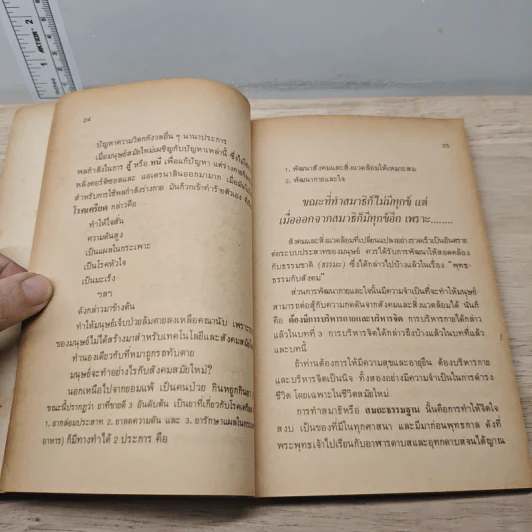 24
ปัญหาความวิตกกังวลอื่น ๆ นานาประการ
เมื่อมนุษย์สมัยใหม่เผชิญกับปัญหาเหล่านี้ ซึ่งไม่
พลกำลังในการ สู้ หรือ หนี เพื่อแก้ปัญหา แต่ร่างกาย
หลั่งคอร์ติซอลและ แอเดรนาลินออกมามาก เมื่อ
สำหรับการใช้พลกำลังร่างกาย มันก็วกเข้าทำร้ายตัวเอง
โรคเครียด กล่าวคือ
ทำให้ใจสั่น
ความดันสูง
เป็นแผลในกระเพาะ
เป็นโรคหัวใจ
เป็นมะเร็ง
ฯลฯ
ดังกล่าวมาข้างต้น
ทำให้มนุษย์เจ็บป่วยล้มตายลงเหลือคณานับ เพราะ
ของมนุษย์ไม่ได้สร้างมาสำหรับเทคโนโลยีและสังคมสมัยใหม่
ทำนองเดียวกับที่หมาถูกรถทับตาย
มนุษย์จะทำอย่างไรกับสังคมสมัยใหม่?
นอกเหนือไปจากยอมแพ้ เป็นคนป่วย กินหยูกกินยา
ขณะนี้ปรากฏว่า ยาที่ขายดี 3 อันดับต้น เป็นยาที่เกี่ยวกับโรคเครียด
1. ยากล่อมประสาท 2. ยาลดความดัน และ 3. ยารักษาแผลในกระเพาะ
อาหาร) ก็มีทางทำได้ 2 ประการ คือ
25
1. พัฒนาสังคมและสิ่งแวดล้อมให้เหมาะสม
2. พัฒนากายและใจ
ขณะที่ทำสมาธิก็ไม่มีทุกข์ แต่
เมื่อออกจากสมาธิก็มีทุกข์อีก เพราะ.......
สังคมและสิ่งแวดล้อมที่เปลี่ยนแปลงอย่างรวดเร็วเป็นอันตราย
ต่อระบบประสาทของมนุษย์ ควรได้รับการพัฒนาให้สอดคล้อง
กับธรรมชาติ (ธรรมะ) ซึ่งได้กล่าวไปบ้างแล้วในเรื่อง "พุทธ-
ธรรมกับสังคม"
ส่วนการพัฒนากายและใจนั้นมีความจำเป็นที่จะทำให้มนุษย์
สามารถต่อสู้กับความกดดันจากสังคมและสิ่งแวดล้อมได้ นั่นก็
คือ ต้องมีการบริหารกายและบริหารจิต การบริหารกายได้กล่าว
แล้วในบทที่ 3 การบริหารจิตได้กล่าวถึงบ้างแล้วในบทที่แล้ว
และบทนี้
ถ้าท่านต้องการให้มีความสุขและอายุยืน ต้องบริหารกาย
และบริหารจิตเป็นนิจ ทั้งสองอย่างมีความจำเป็นในการดำรง
ชีวิต โดยเฉพาะในชีวิตสมัยใหม่
การทำสมาธิหรือ สมถะธรรมฐาน นั้นคือการทำให้จิตใจ
สงบ เป็นของที่มีในทุกศาสนา และมีมาก่อนพุทธกาล ดังที่
พระพุทธเจ้าไปเรียนกับอาฬารดาบสและอุทกดาบสจนได้ญาณ